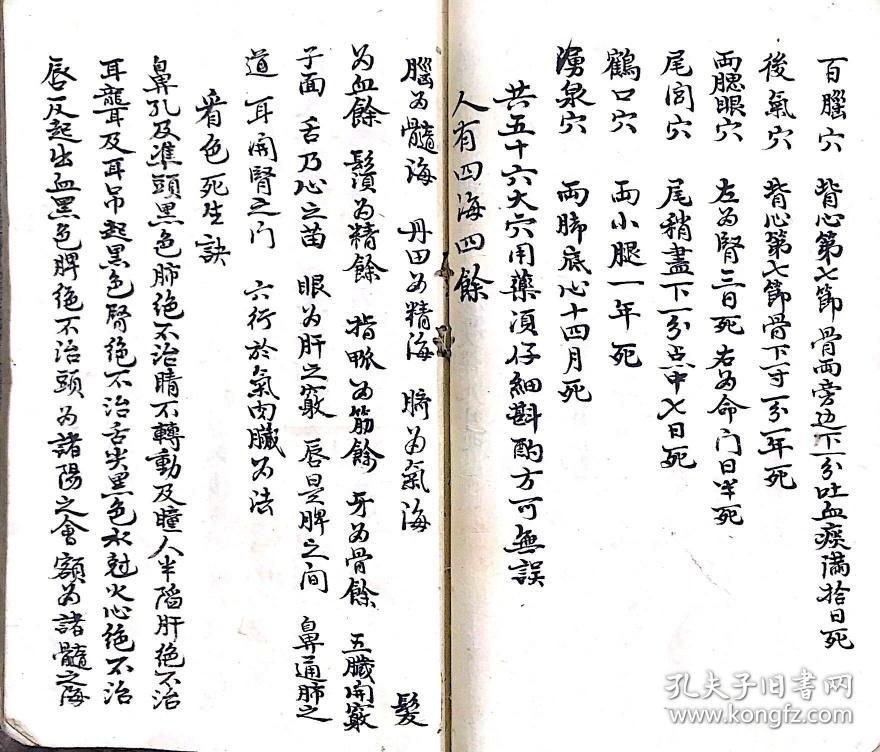 百腦穴 背心第七節骨兩旁边下一分吐血痰滿拾日死
後氣穴 背心第七節骨下一寸一分一年死
兩腮眼穴 左为腎三日死 右为命门日半死
尾闾穴 尾稍盡下一分点中七日死
鶴口穴 兩小腿一年死
湧泉穴 兩脚底心十四月死
共五十六大穴用藥須仔細斟酌方可無誤
人有四海四餘
腦为髓海 丹田为精海 臍为氣海 髮
为血餘 鬚为精餘 指甲为筋餘 牙为骨餘 五臟開竅
子面 舌乃心之苗 眼为肝之竅 唇是脾之间 鼻通肺之
道 耳開腎之门 六行於氣肉臟为法
看色死生訣
鼻孔及準頭黑色肺绝不治睛不轉動及瞳人半陷肝绝不治
耳聾耳及耳吊起黑色腎绝不治舌尖黑色水尅火心绝不治
唇反起出血黑色脾绝不治頭为諸陽之會額为諸髓之海
孔夫子旧书网
www.kongfz.com